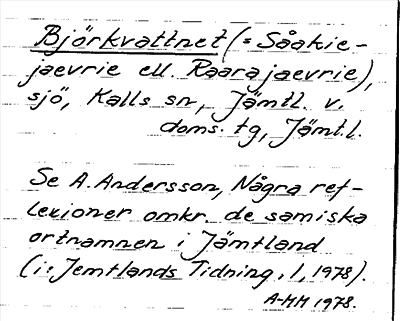 Björkvattnet (= Såakie-
jaevrie ell. Raarajaevrie),
sjö, Kalls sn, Jämtl. v.
doms. tg, Jämt.l.
Se A. Andersson, Några ref-
lexioner omkr. de samiska
ortnamnen i Jämtland
(i: Jemtlands Tidning, 1, 1978).
A-MM 1978.